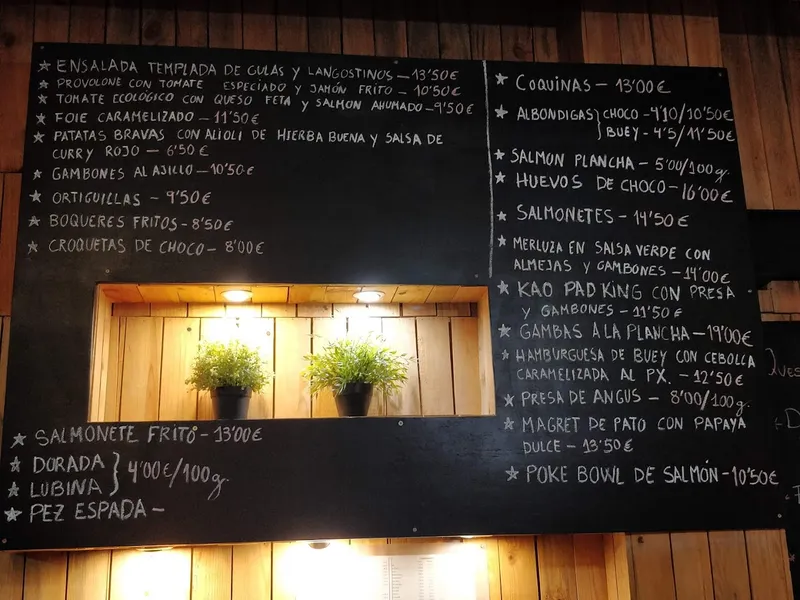 ★ ENSALADA TEMPLADA DE GULAS Y LANGOSTINOS — 13'50€
★ PROVOLONE CON TOMATE ESPECIADO Y JAMÓN FRITO — 10'50€
★ TOMATE ECOLÓGICO CON QUESO FETA Y SALMON AHUMADO — 9'50€
★ FOIE CARAMELIZADO — 11'50€
★ PATATAS BRAVAS CON ALIOLI DE HIERBA BUENA Y SALSA DE
CURRY ROJO — 6'50€
★ GAMBONES AL AJILLO — 10'50€
★ ORTIGUILLAS — 9'50€
★ BOQUERES FRITOS - 8'50€
★ CROQUETAS DE CHOCO — 8'00€
★ SALMONETE FRITO - 13'00€
★ DORADA } 4'00€/100g.
★ LUBINA
★ PEZ ESPADA —
★ COQUINAS — 13'00€
★ ALBONDIGAS } CHOCO - 4'10/10'50€
BUEY - 4'5/11'50€
★ SALMON PLANCHA — 5'00/100g.
★ HUEVOS DE CHOCO — 16'00€
★ SALMONETES - 14'50€
★ MERLUZA EN SALSA VERDE CON
ALMEJAS Y GAMBONES - 14'00€
★ KAO PAD KING CON PRESA
Y GAMBONES - 11'50€
★ GAMBAS A LA PLANCHA — 19'00€
★ HAMBURGUESA DE BUEY CON CEBOLLA
CARAMELIZADA AL PX. — 12'50€
★ PRESA DE ANGUS — 8'00/100g.
★ MAGRET DE PATO CON PAPAYA
DULCE — 13'50€
★ POKE BOWL DE SALMÓN - 10'50€